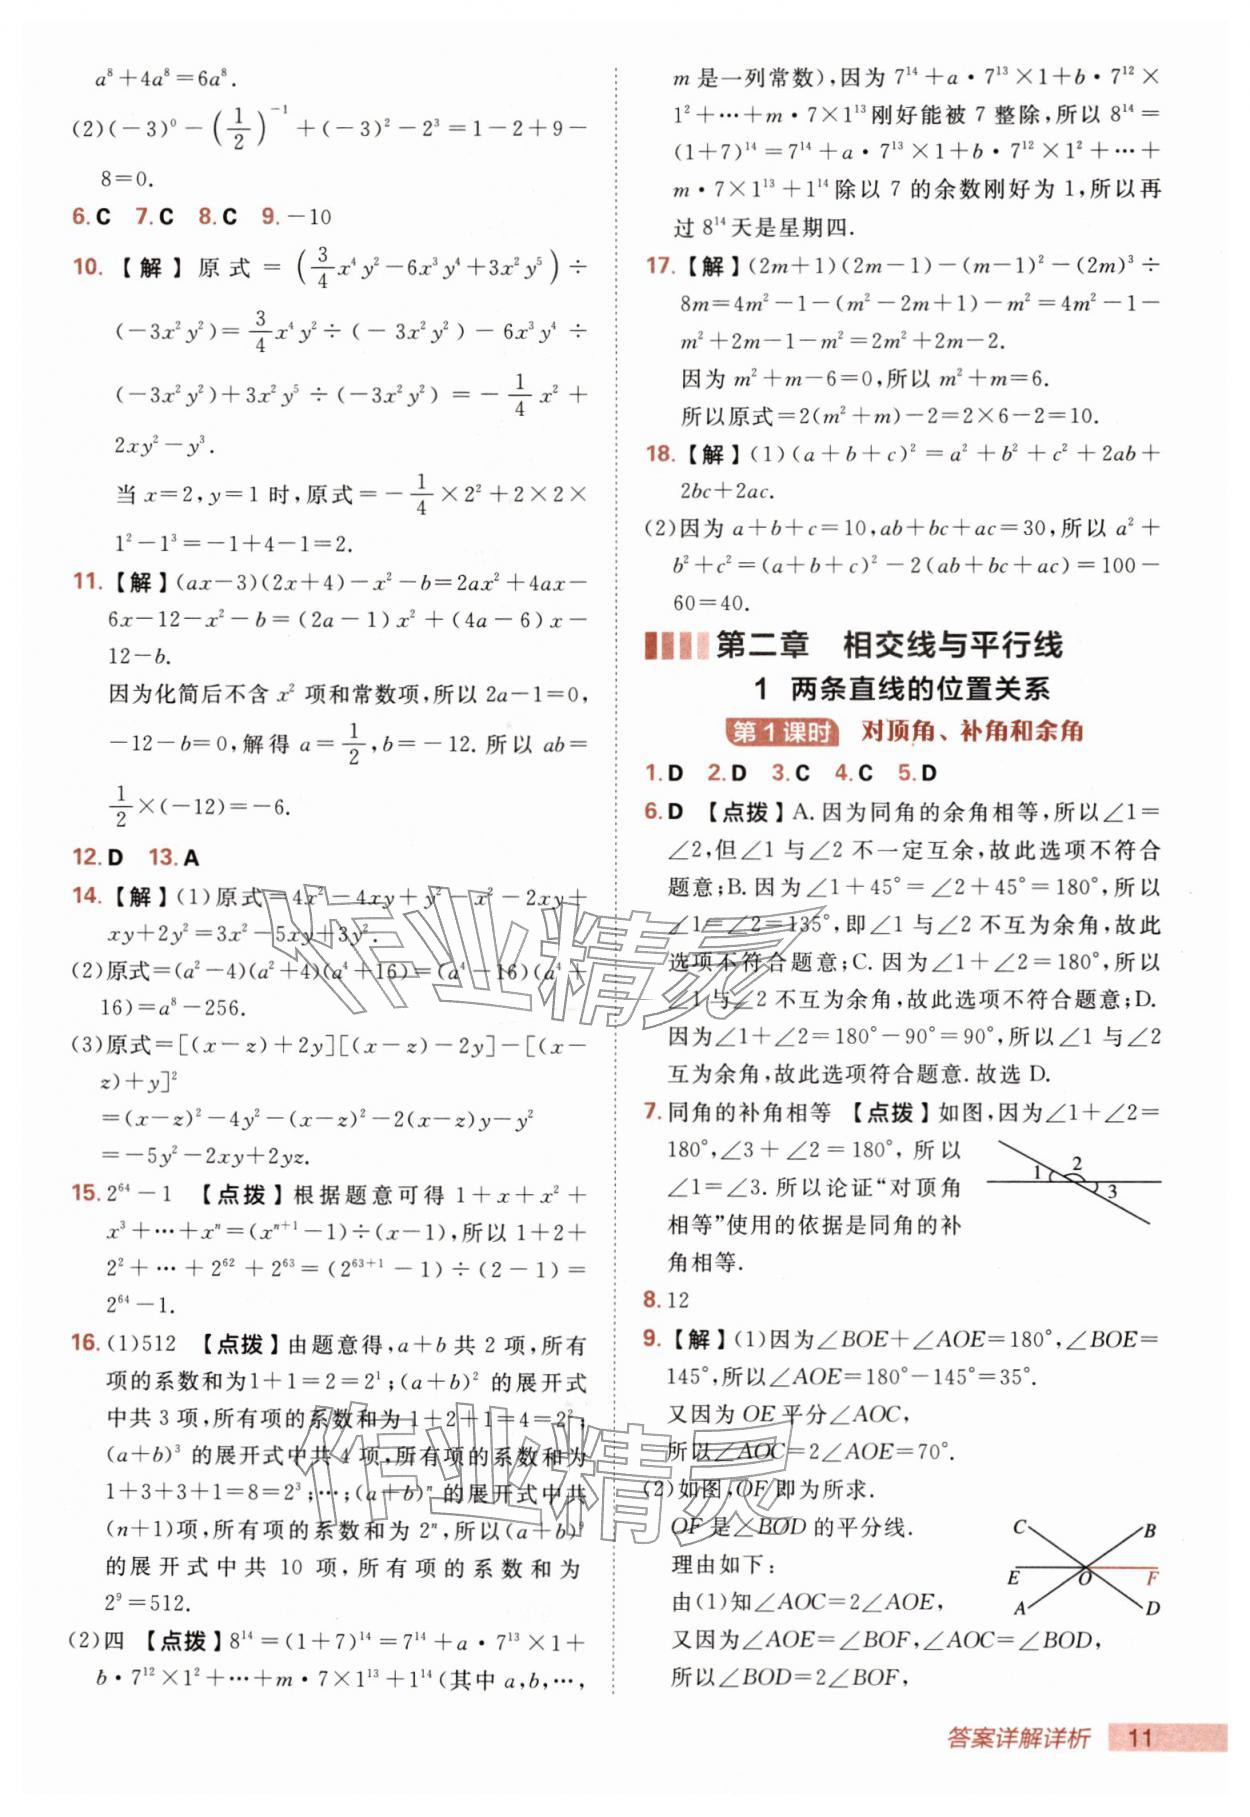 a⁸+4a⁸=6a⁸.
(2)(-3)⁰-(1/2)⁻¹+(-3)²-2³=1-2+9-
8=0.
6. C 7. C 8. C 9. -10
10. 【解】原式=(3/4x⁴y²-6x³y⁴+3x²y⁵)÷
(-3x²y²)=3/4x⁴y²÷(-3x²y²)-6x³y⁴÷
(-3x²y²)+3x²y⁵÷(-3x²y²)=-1/4x²+
2xy²-y³.
当x=2,y=1时,原式=-1/4×2²+2×2×
1²-1³=-1+4-1=2.
11. 【解】(ax-3)(2x+4)-x²-b=2ax²+4ax-
6x-12-x²-b=(2a-1)x²+(4a-6)x-
12-b.
因为化简后不含x²项和常数项,所以2a-1=0,
-12-b=0,解得a=1/2,b=-12.所以ab=
1/2×(-12)=-6.
12. D 13. A
14. 【解】(1)原式=4x²-4xy+y²-x²-2xy+
xy+2y²=3x²-5xy+3y².
(2)原式=(a²-4)(a²+4)(a⁴+16)=(a⁴-16)(a⁴+
16)=a⁸-256.
(3)原式=[(x-z)+2y][(x-z)-2y]-[(x-
z)+y]²
=(x-z)²-4y²-(x-z)²-2(x-z)y-y²
=-5y²-2xy+2yz.
15. 2⁶⁴-1 【点拨】根据题意可得1+x+x²+
x³+…+xⁿ=(xⁿ⁺¹-1)÷(x-1),所以1+2+
2²+…+2⁶²+2⁶³=(2⁶³⁺¹-1)÷(2-1)=
2⁶⁴-1.
16. (1)512 【点拨】由题意得,a+b共2项,所有
项的系数和为1+1=2=2¹;(a+b)²的展开式
中共3项,所有项的系数和为1+2+1=4=2²;
(a+b)³的展开式中共4项,所有项的系数和为
1+3+3+1=8=2³;…;(a+b)ⁿ的展开式中共
(n+1)项,所有项的系数和为2ⁿ,所以(a+b)⁹
的展开式中共10项,所有项的系数和为
2⁹=512.
(2)四 【点拨】8¹⁴=(1+7)¹⁴=7¹⁴+a·7¹³×1+
b·7¹²×1²+…+m·7×1¹³+1¹⁴(其中a,b,…,
m是一列常数),因为7¹⁴+a·7¹³×1+b·7¹²×
1²+…+m·7×1¹³刚好能被7整除,所以8¹⁴=
(1+7)¹⁴=7¹⁴+a·7¹³×1+b·7¹²×1²+…+
m·7×1¹³+1¹⁴除以7的余数刚好为1,所以再
过8¹⁴天是星期四.
17. 【解】(2m+1)(2m-1)-(m-1)²-(2m)³÷
8m=4m²-1-(m²-2m+1)-m²=4m²-1-
m²+2m-1-m²=2m²+2m-2.
因为m²+m-6=0,所以m²+m=6.
所以原式=2(m²+m)-2=2×6-2=10.
18. 【解】(1)(a+b+c)²=a²+b²+c²+2ab+
2bc+2ac.
(2)因为a+b+c=10,ab+bc+ac=30,所以a²+
b²+c²=(a+b+c)²-2(ab+bc+ac)=100-
60=40.
第二章 相交线与平行线
1 两条直线的位置关系
第1课时 对顶角、补角和余角
1. D 2. D 3. C 4. C 5. D
6. D 【点拨】A.因为同角的余角相等,所以∠1=
∠2,但∠1与∠2不一定互余,故此选项不符合
题意;B.因为∠1+45°=∠2+45°=180°,所以
∠1=∠2=135°,即∠1与∠2不互为余角,故此
选项不符合题意;C.因为∠1+∠2=180°,所以
∠1与∠2不互为余角,故此选项不符合题意;D.
因为∠1+∠2=180°-90°=90°,所以∠1与∠2
互为余角,故此选项符合题意.故选D.
7. 同角的补角相等 【点拨】如图,因为∠1+∠2=
180°,∠3+∠2=180°,所以
∠1=∠3.所以论证“对顶角
相等”使用的依据是同角的补
角相等.
1 2 3
8. 12
9. 【解】(1)因为∠BOE+∠AOE=180°,∠BOE=
145°,所以∠AOE=180°-145°=35°.
又因为OE平分∠AOC,
所以∠AOC=2∠AOE=70°.
(2)如图,OF即为所求.
OF是∠BOD的平分线.
理由如下:
由(1)知∠AOC=2∠AOE,
又因为∠AOE=∠BOF,∠AOC=∠BOD,
所以∠BOD=2∠BOF,
C B
E O F
A D
答案详解详析 11
作业精灵
作业精灵